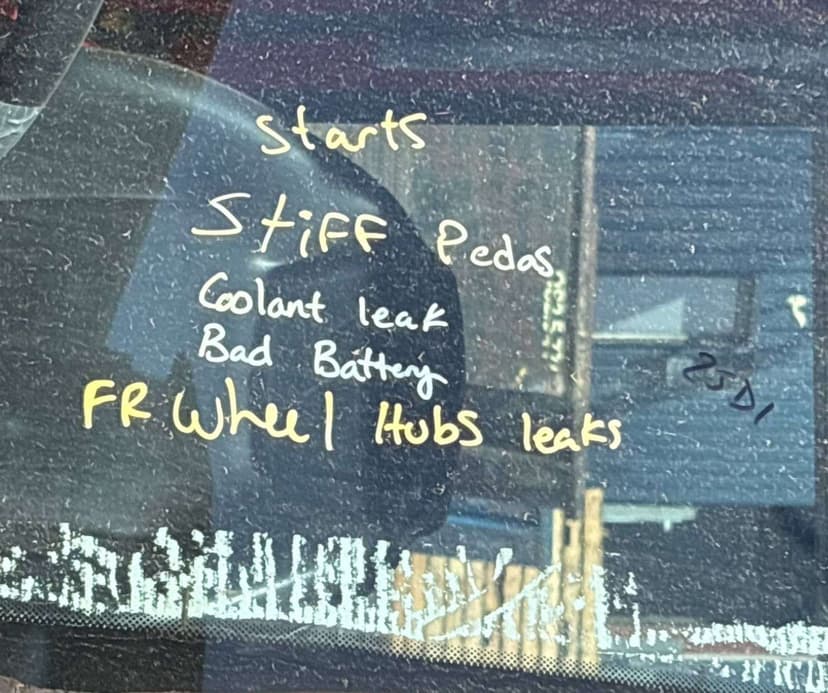 Starts
Stiff Pedas
Coolant leak
Bad Battery
FR Wheel Hubs leaks
25D1